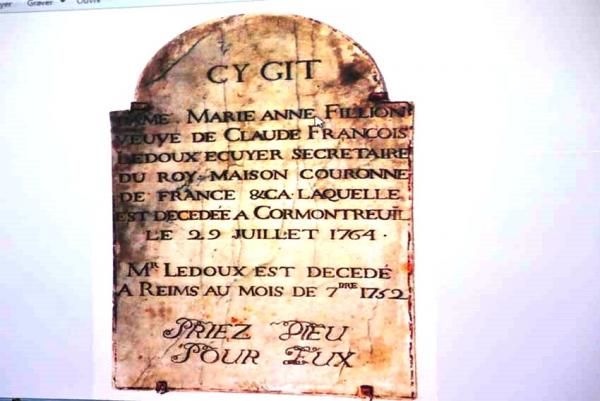 Graver
Ouvrir
CY GIT
DAME MARIE ANNE FILLION
VEUVE DE CLAUDE FRANCOIS
LEDOUX ECUYER SECRETAIRE
DU ROY MAISON COURONNE
DE FRANCE &CA LAQUELLE
EST DECEDÉE A CORMONTREUIL
LE 29 JUILLET 1764 .
MR LEDOUX EST DECEDÉ
A REIMS AU MOIS DE 7DRE 1752
PRIEZ DIEU
POUR EUX